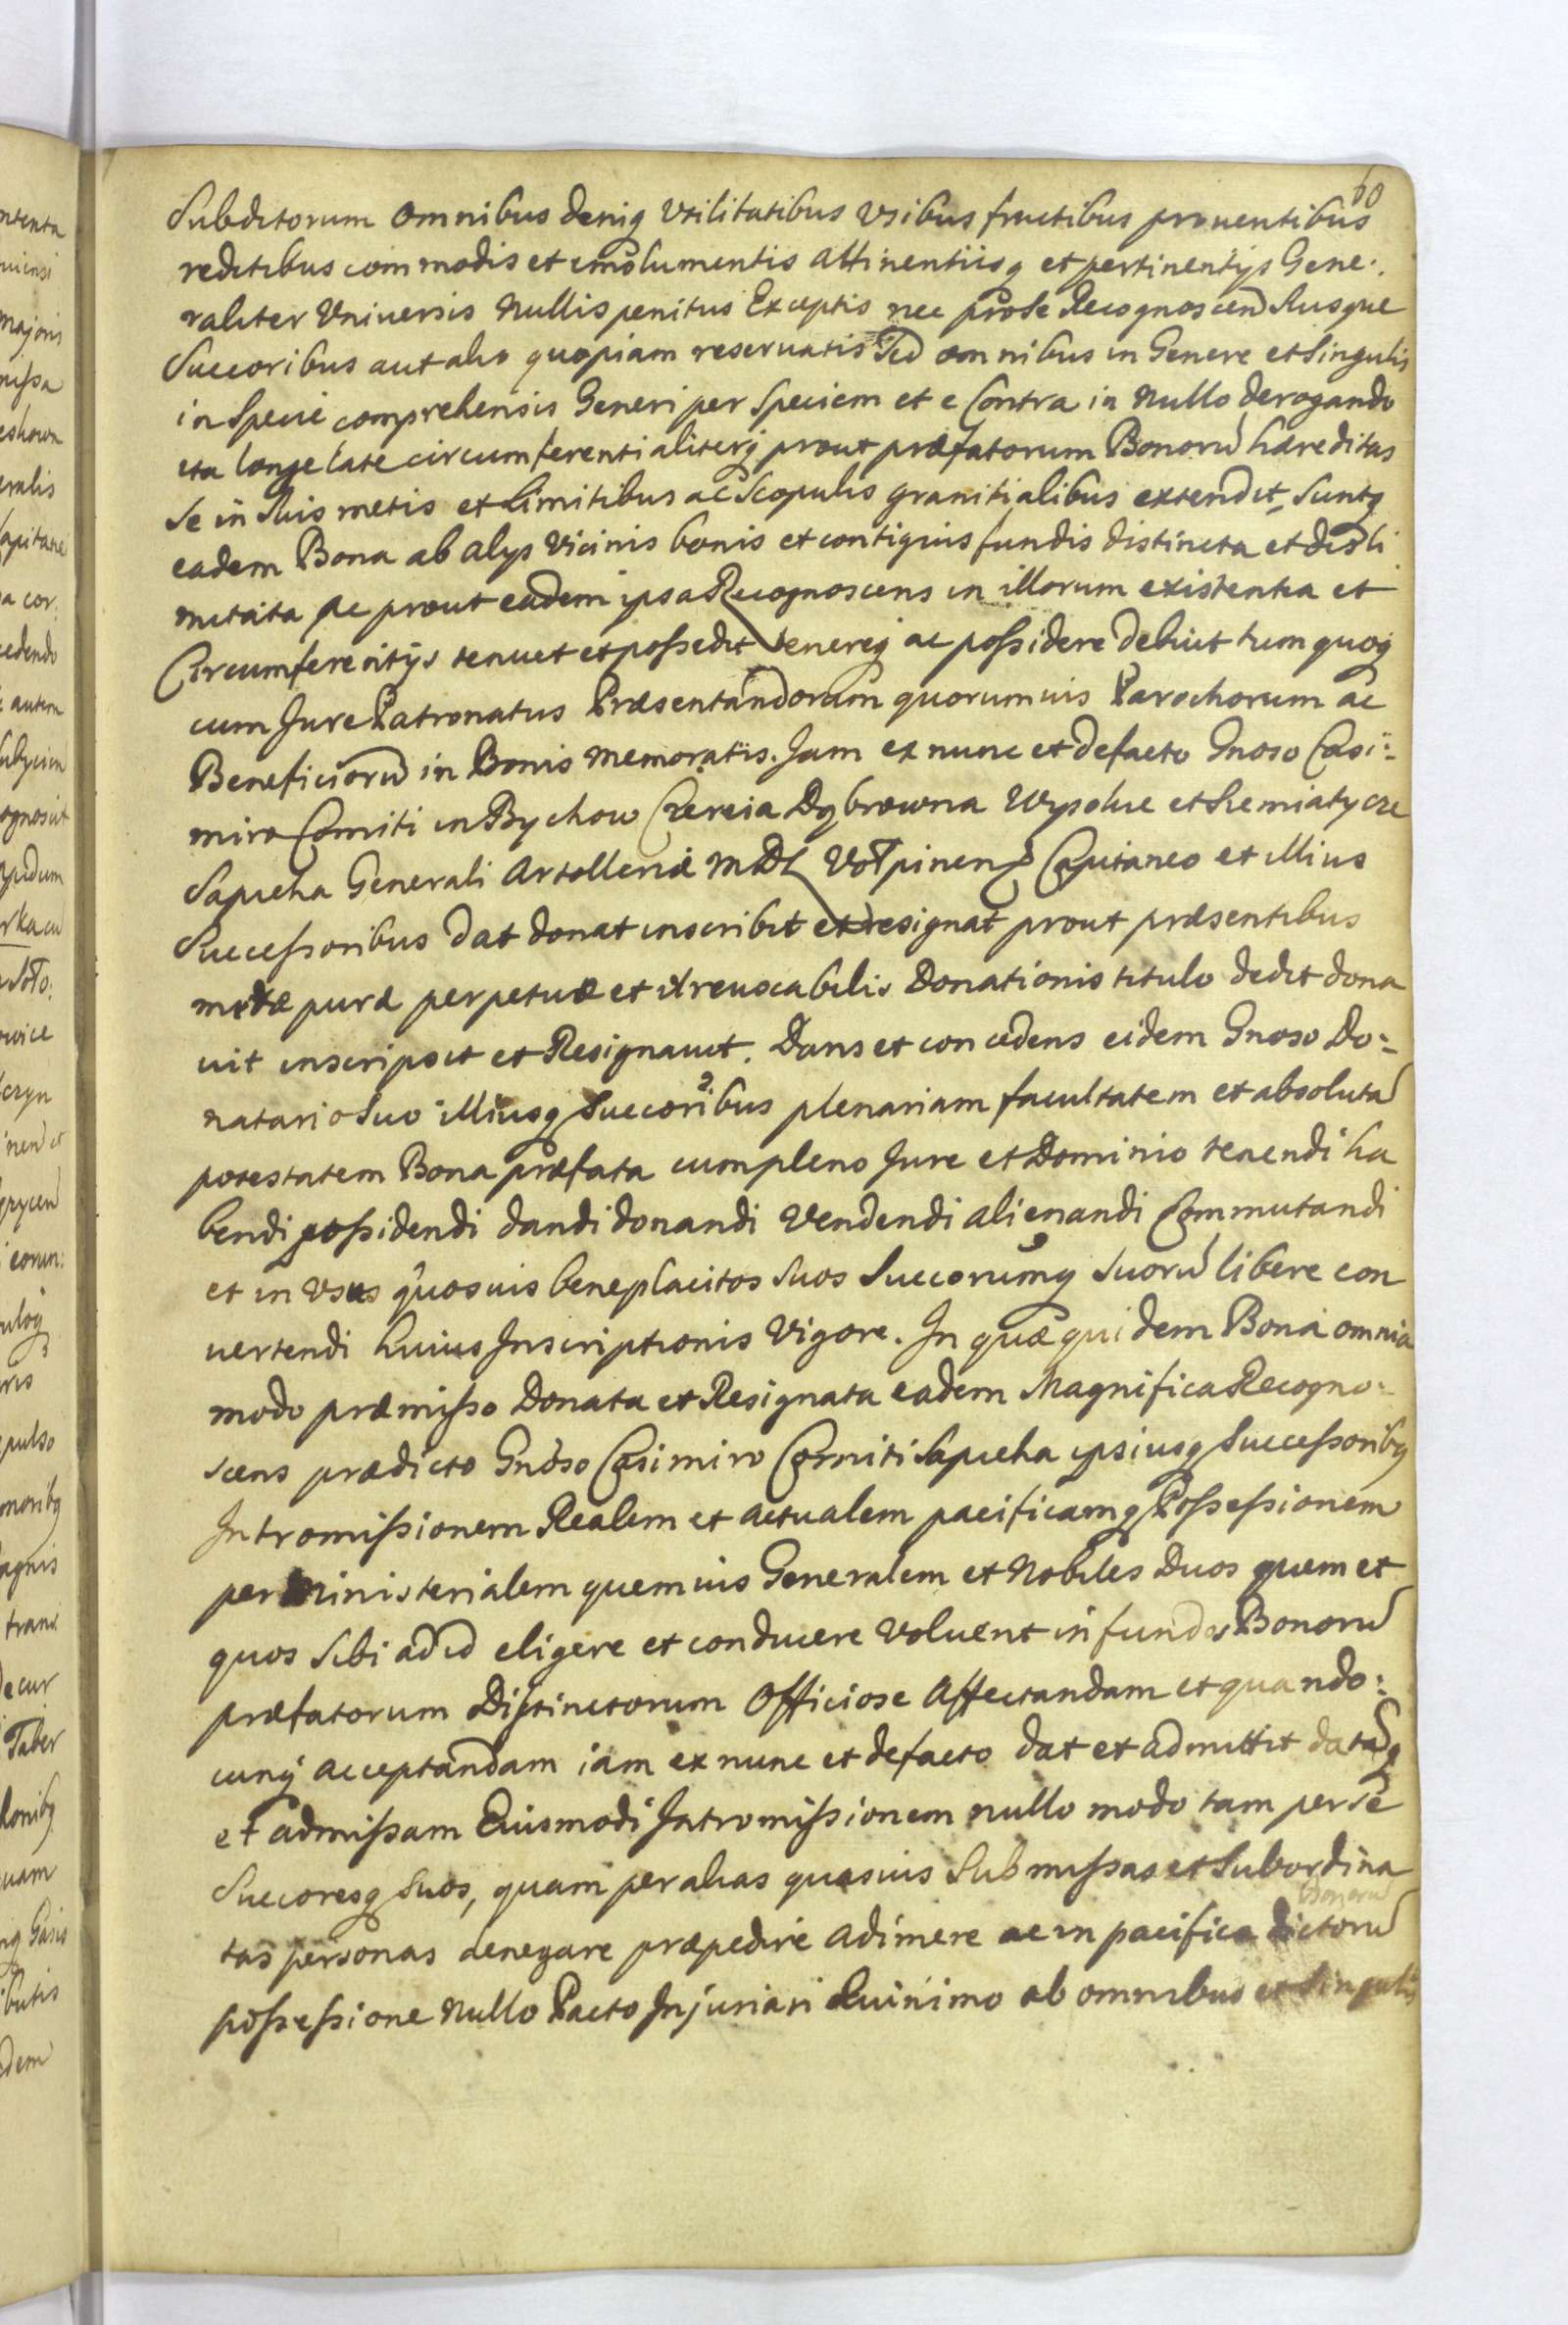 60
Subditorum omnibus deniq vtilitatibus vsibus fructibus prouentibus
reditibus commodis et emolumentis attinentiisq et pertinentijs Gene:
raliter Vniuersis Nullis penitus Exceptis nec pro se Recognoscen Susque
Succoribus aut alio quopiam reseruatis Sed omnibus in Genere et Singulis
in Specie comprehensis Generi per Speciem et e Contra in Nullo derogando
ita longe late circumferentialiterq prout præfatorum Bonorũ hæreditas
se in Suis metis et limitibus ac Scopulis granitialibus extendit, Suntq
eadem Bona ab alys Vicinis bonis et contiguis fundis distincta et disli
mitata ac prout eadem ipsa Recognoscens in illorum existentia et
Circumferentijs tenuit et possedit tenereq ac possidere debuit tum quoq
cum Jure Patronatus Præsentandorum quorumuis Parochorum ac
Beneficiorũ in Bonis memoratis. Jam ex nunc et defacto Gnoso Casi:
miro Comiti in Bychow Czereia Dąbrowna Wysokie et Siemiatycze
Sapieha Generali Artolleriæ MDL Volpinen Capitaneo et illius
Successoribus dat donat inscribit et resignat prout præsentibus
meræ puræ perpetuæ et irreuocabilis Donationis titulo dedit dona
uit inscripsit et Resignauit. Dans et concedens eidem Gnoso Do:
natario Suo illiusq Succoribus plenariam facultatem et absolutã
potestatem Bona præfata cum pleno Jure et Dominio tenendi ha
bendi possidendi dandi donandi Vendendi alienandi Commutandi
et in vsus quosuis beneplacitos Suos Succorumq Suorũ libere con
uertendi huius Inscriptionis Vigore. In quæ quidem Bona omnia
modo præmisso Donata et Resignata eadem Magnifica Recogno:
scens prædicto Gnoso Casimiro Comiti Sapieha ipsiusq Successoribq
Intromissionem Realem et actualem pacificamq Possessionem
per Ministerialem quemuis Generalem et Nobiles Duos quem et
quos Sibi ad id eligere et conducere Voluerit in fundis Bonorũ
præfatorum Distinctorum Officiose Affectandam et quando:
cunq acceptandam iam ex nunc et defacto dat et admittit datãq
et admissam Euismodi Intromissionem nullo modo tam per se
Succoresq Suos, quam per alias quasuis Submissas et Subordina
tas personas denegare præpedire adimere ac in pacifica dictorũ Bonorũ
possessione Nullo Pacto Injuriari Quinimo ab omnibus et Singulis